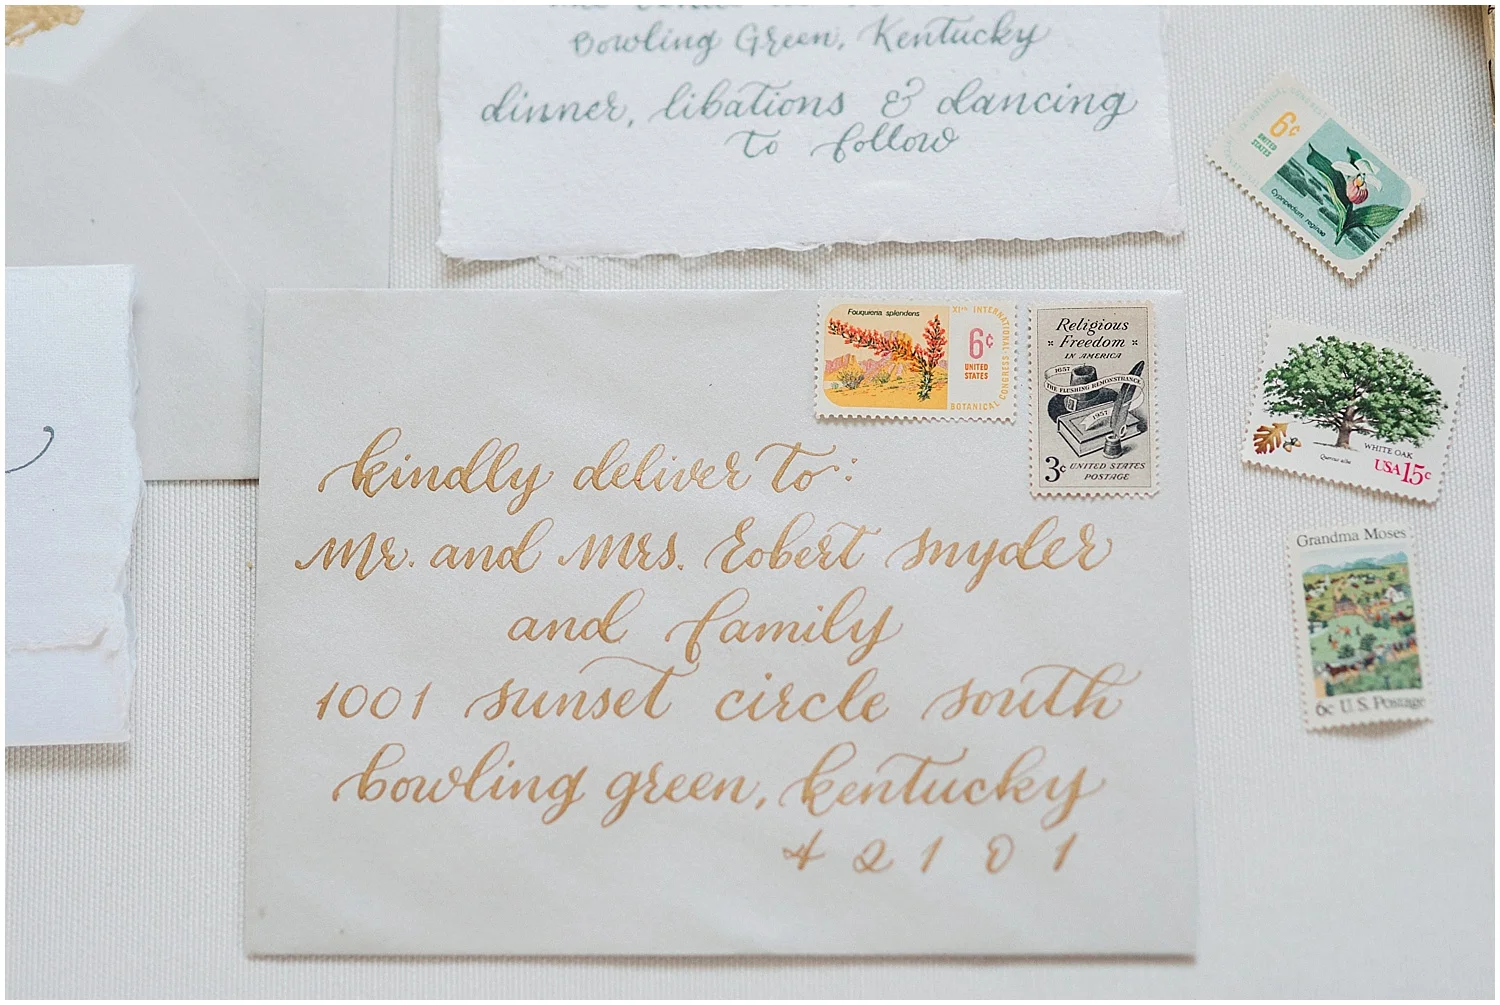 Bowling Green, Kentucky
dinner, libations & dancing
to follow
kindly deliver to:
Mr. and Mrs. Robert Snyder
and family
1001 sunset circle south
bowling green, kentucky
42101
Fouquieria splendens
XITH INTERNATIONAL
BOTANICAL CONGRESS
6c
UNITED
STATES
Religious
Freedom
IN AMERICA
1657
THE FLUSHING REMONSTRANCE
1957
3c UNITED STATES
POSTAGE
6c
UNITED
STATES
Cypripedium reginae
WHITE OAK
Quercus alba
USA 15c
Grandma Moses
6c U.S. Postage